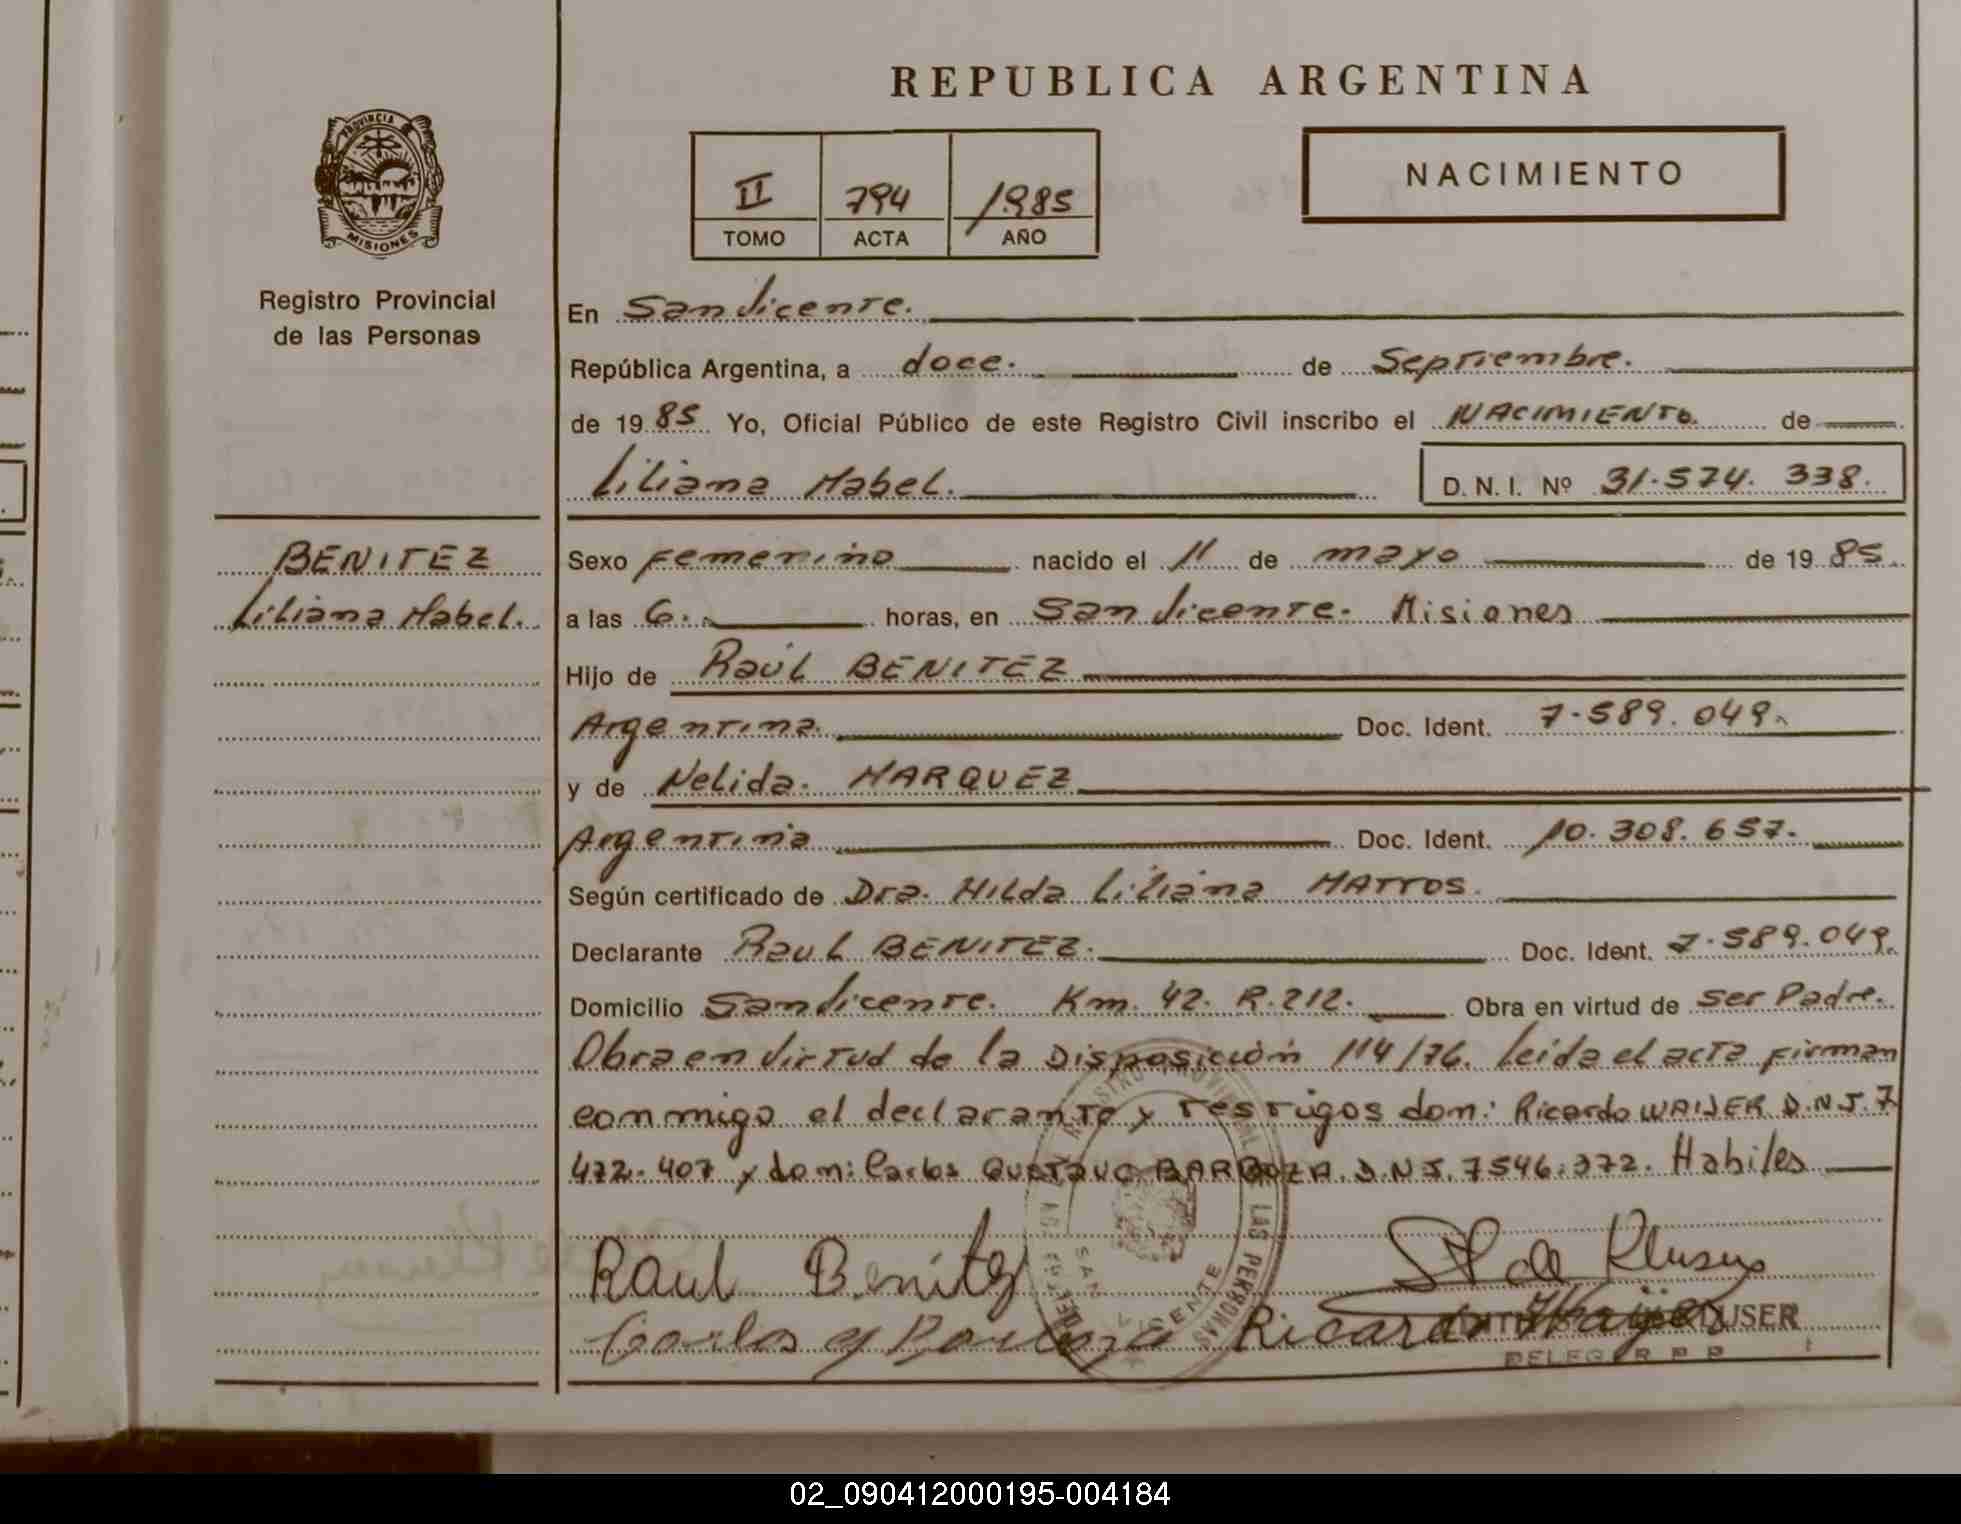 REPUBLICA ARGENTINA
PROVINCIA
MISIONES
Registro Provincial
de las Personas
II 794 1985
TOMO ACTA AÑO
NACIMIENTO
En San Vicente.
República Argentina, a doce. de Septiembre.
de 19 85 Yo, Oficial Público de este Registro Civil inscribo el NACIMIENTO. de
Liliana Mabel. D. N. I. Nº 31.574. 338.
BENITEZ
Liliana Mabel.
Sexo Femenino nacido el 11 de mayo de 19 85.
a las 6. horas, en San Vicente. Misiones
Hijo de Raúl BENITEZ
Argentina. Doc. Ident. 7.589.049.
y de Nelida. MARQUEZ
Argentina Doc. Ident. 10.308.657.
Según certificado de Dra. Hilda Liliana MATTOS.
Declarante Raul BENITEZ. Doc. Ident. 7.589.049.
Domicilio San Vicente. Km. 42. R.212. Obra en virtud de ser Padre.
Obra en virtud de la Disposición 114/76. leida el acta firman
conmigo el declarante y testigos don: Ricardo WAIJER D.N.I. 7
472.407 y don: Carlos GUSTAVO BARBOZA. D.N.I. 7546.372. Habiles
Raul Benitez
SAN VICENTE
LAS PERSONAS
Ricardo
02_090412000195-004184